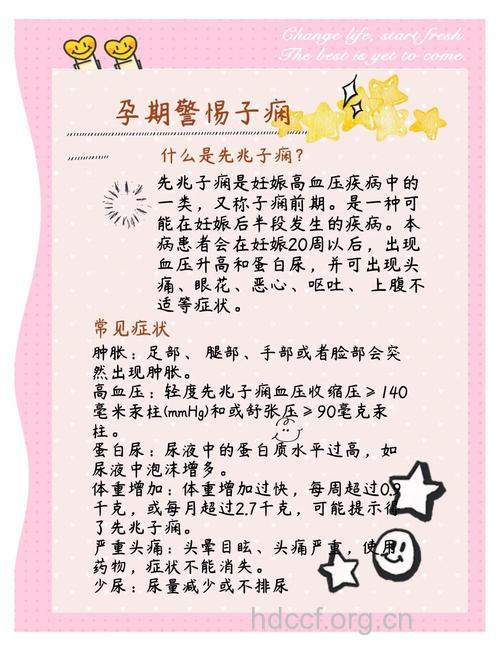 Change life, start fresh.
The best is yet to come.
孕期警惕子痫
什么是先兆子痫？
先兆子痫是妊娠高血压疾病中的
一类，又称子痫前期。是一种可
能在妊娠后半段发生的疾病。本
病患者会在妊娠20周以后，出现
血压升高和蛋白尿，并可出现头
痛、眼花、恶心、呕吐、上腹不
适等症状。
常见症状
肿胀：足部、腿部、手部或者脸部会突
然出现肿胀。
高血压：轻度先兆子痫血压收缩压≥140
毫米汞柱(mmHg)和或舒张压≥90毫克汞
柱。
蛋白尿：尿液中的蛋白质水平过高，如
尿液中泡沫增多。
体重增加：体重增加过快，每周超过0.9
千克，或每月超过2.7千克，可能提示得
了先兆子痫。
严重头痛：头晕目眩、头痛严重，使用
药物，症状不能消失。
少尿：尿量减少或不排尿
hdccf.org.cn